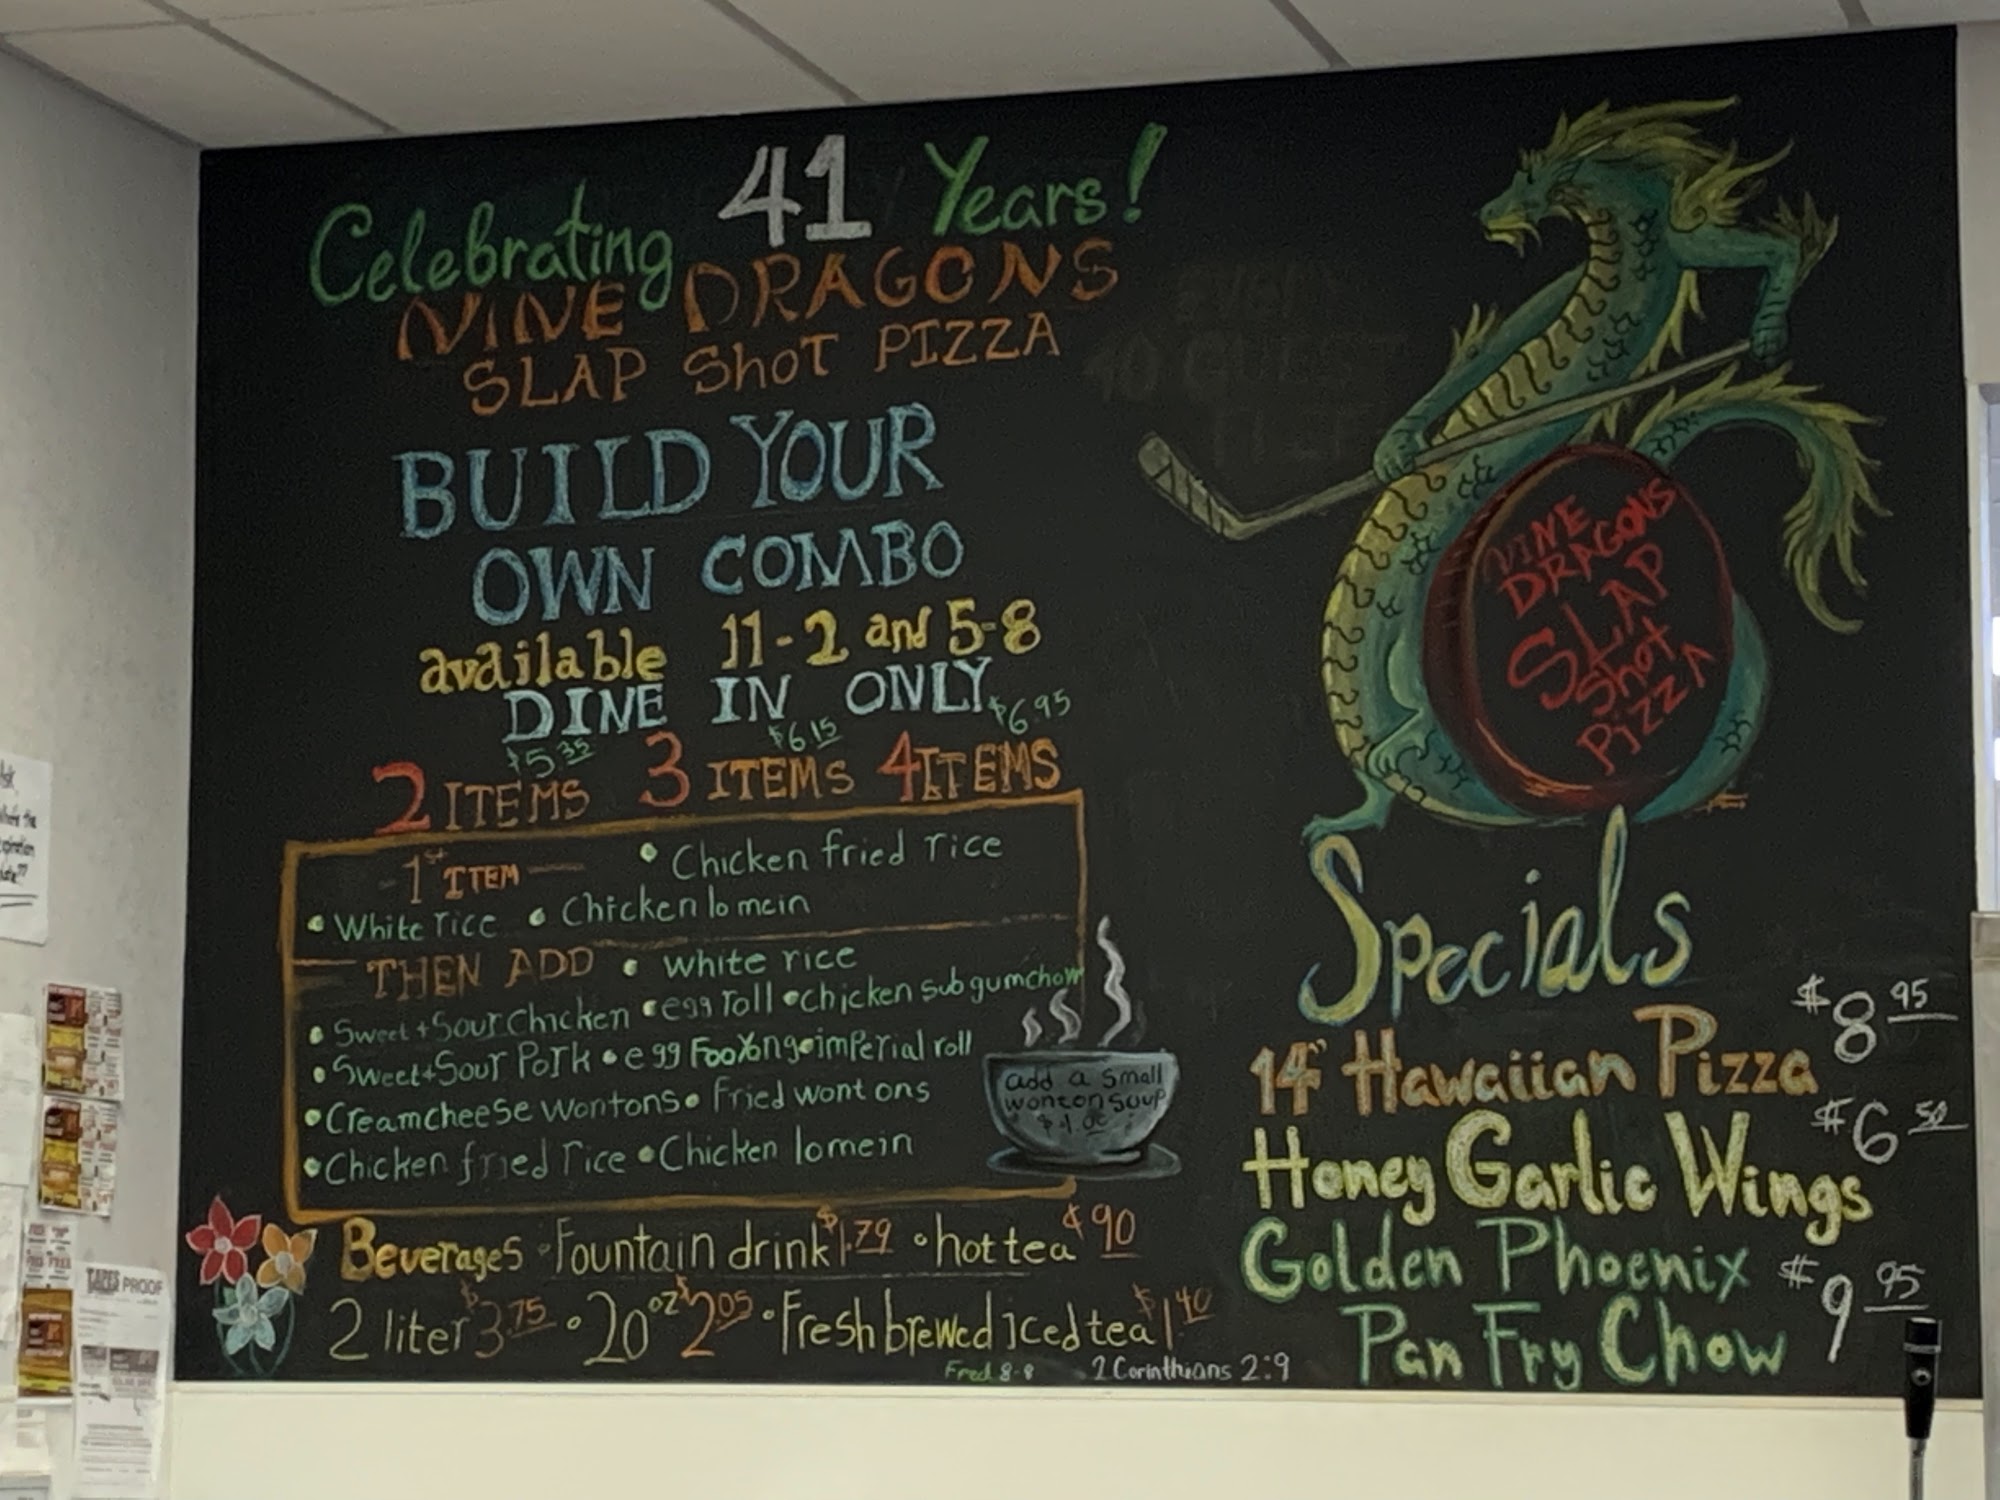 Celebrating 41 Years!
NINE DRAGONS
SLAP ShOT PIZZA
BUILD YOUR
OWN COMBO
available 11-2 and 5-8
DINE IN ONLY
$5.35 $6.15 $6.95
2 ITEMS 3 ITEMS 4 ITEMS
1st ITEM • Chicken fried rice
• White rice • Chicken lo mein
THEN ADD • white rice
• Sweet + Sour Chicken • egg roll • Chicken sub gum chow
• Sweet + Sour Pork • egg Foo Yong • imperial roll
• Cream cheese wontons • Fried wontons
• Chicken fried rice • Chicken lo mein
add a small
wonton soup
Beverages • Fountain drink $1.79 • hot tea ¢90
2 liter $3.75 • 20 oz $2.05 • Fresh brewed iced tea $1.40
Fred 8-8 1 Corinthians 2:9
NINE
DRAGONS
SLAP
Shot
PIZZA
Specials
14" Hawaiian Pizza $8.95
Honey Garlic Wings $6.50
Golden Phoenix
Pan Fry Chow $9.95
EVERY
10 GUEST
TAPES PROOF